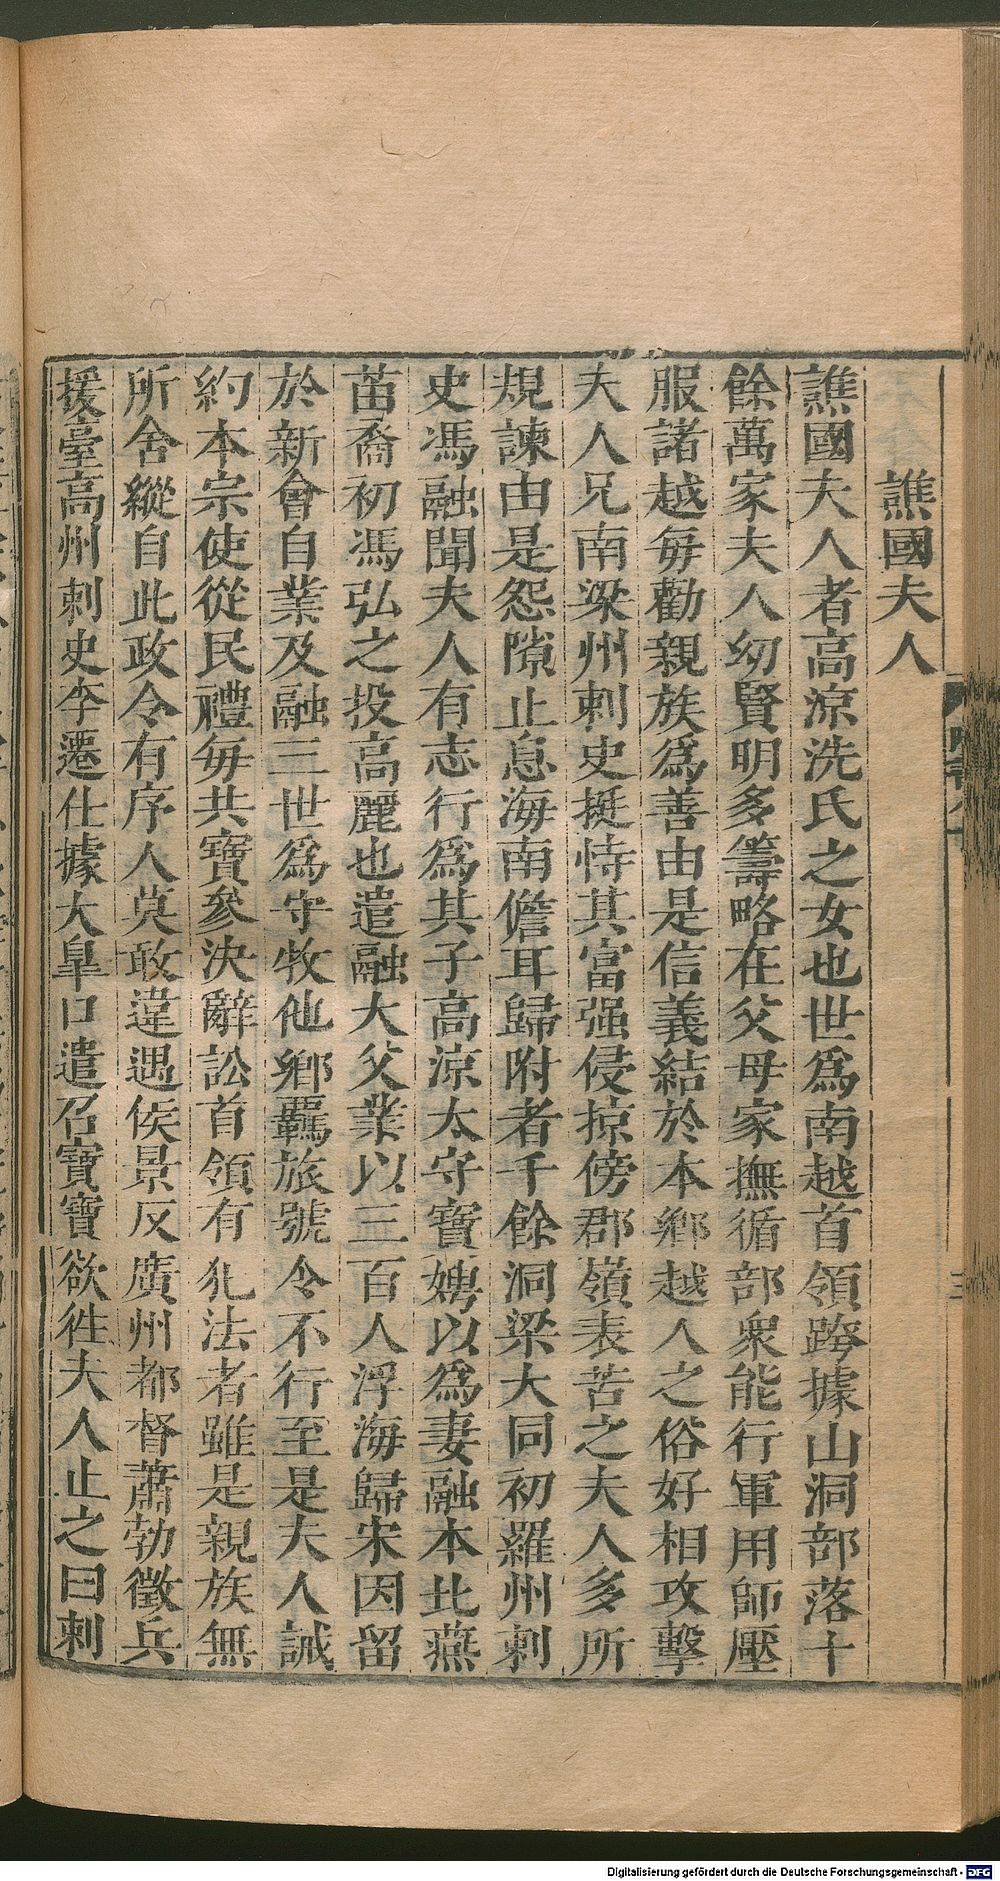 譙國夫人
譙國夫人者高涼洗氏之女也世為南越首領跨據山洞部落十
餘萬家夫人幼賢明多籌略在父母家撫循部衆能行軍用師壓
服諸越毎勸親族為善由是信義結於本鄉越人之俗好相攻擊
夫人兄南梁州刺史挺恃其富强侵掠傍郡嶺表苦之夫人多所
規諫由是怨隙止息海南儋耳歸附者千餘洞梁大同初羅州刺
史馮融聞夫人有志行為其子高涼太守寶娉以為妻融本北燕
苗裔初馮弘之投高麗也遣融大父業以三百人浮海歸宋因留
於新會自業及融三世為守牧他鄉羈旅號令不行至是夫人誡
約本宗使從民禮毎共寶參決辭訟首領有犯法者雖是親族無
所舍縱自此政令有序人莫敢違遇侯景反廣州都督蕭勃徵兵
援臺高州刺史李遷仕據大皐口遣召寶寶欲徃夫人止之曰刺
三
Digitalisierung gefördert durch die Deutsche Forschungsgemeinschaft - DFG